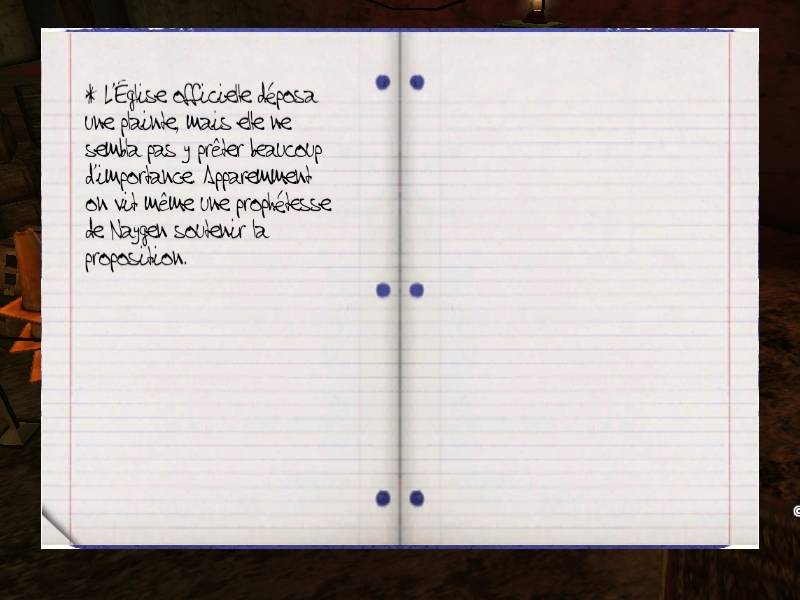 * L'Église officielle déposa
une plainte, mais elle ne
sembla pas y prêter beaucoup
d'importance. Apparemment
on vit même une prophétesse
de Naygen soutenir la
proposition.
©